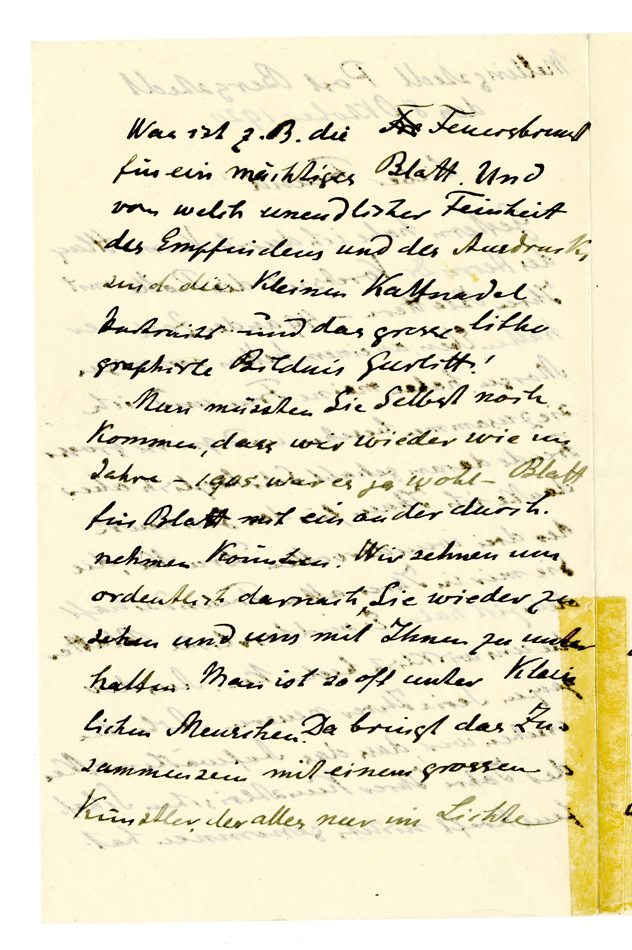 Was ist z. B. die Feuersbrunst
für ein mächtiges Blatt. Und
von welch unendlicher Feinheit
des Empfindens und des Ausdrucks
sind die kleinen Kaltnadel
und das grosse litho
graphirte Bildnis Gurlitt!
Nun müssten Sie Selbst noch
kommen, dass wir wieder wie im
Jahre – 1905 war es ja wohl – Blatt
für Blatt mit einander durch-
nehmen könnten. Wir sehnen uns
ordentlich darnach, Sie wieder zu
sehen und uns mit Ihnen zu unter
halten. Man ist so oft unter klein
lichen Menschen. Da bringt das Zu-
sammensein mit einem grossen
Künstler, der alles nur im Lichte